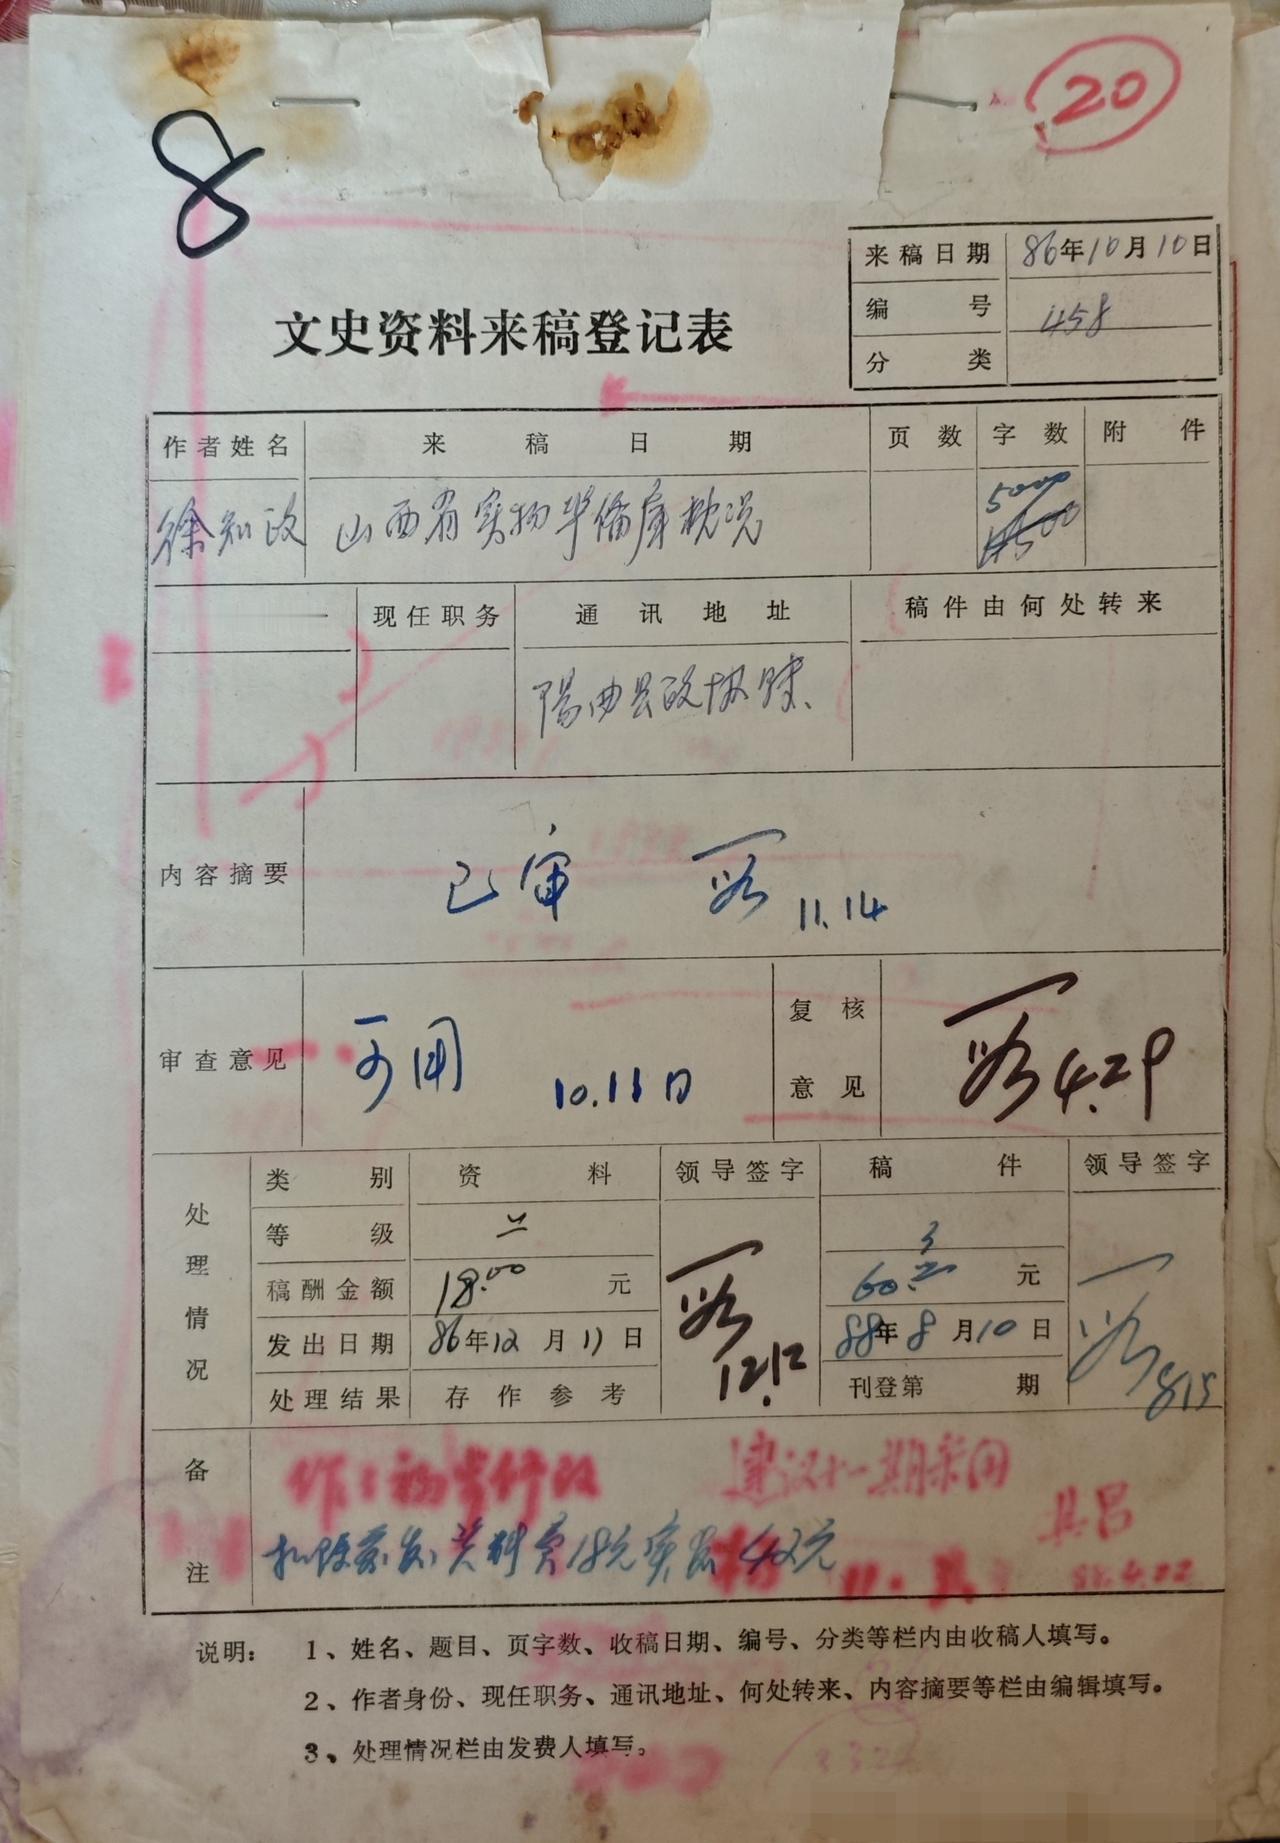 20
8
来稿日期 86年10月10日
编号 458
分类
文史资料来稿登记表
作者姓名 来稿日期 页数 字数 附件
徐知政 山西省实物准备库概况 5000
现任职务 通讯地址 稿件由何处转来
阳曲县政协
内容摘要 已审 11.14
审查意见 可用 10.13日 复核意见 4.29
处理情况
类别 资料 领导签字 稿件 领导签字
等级 二 3
稿酬金额 18.00元 60.元
发出日期 86年12月11日 12.12 88年8月10日
处理结果 存作参考 刊登第 期 8.15
备注
建议十一期采用
扣除 资料费18元实发42元
说明:1、姓名、题目、页字数、收稿日期、编号、分类等栏内由收稿人填写。
2、作者身份、现任职务、通讯地址、何处转来、内容摘要等栏由编辑填写。
3、处理情况栏由发费人填写。